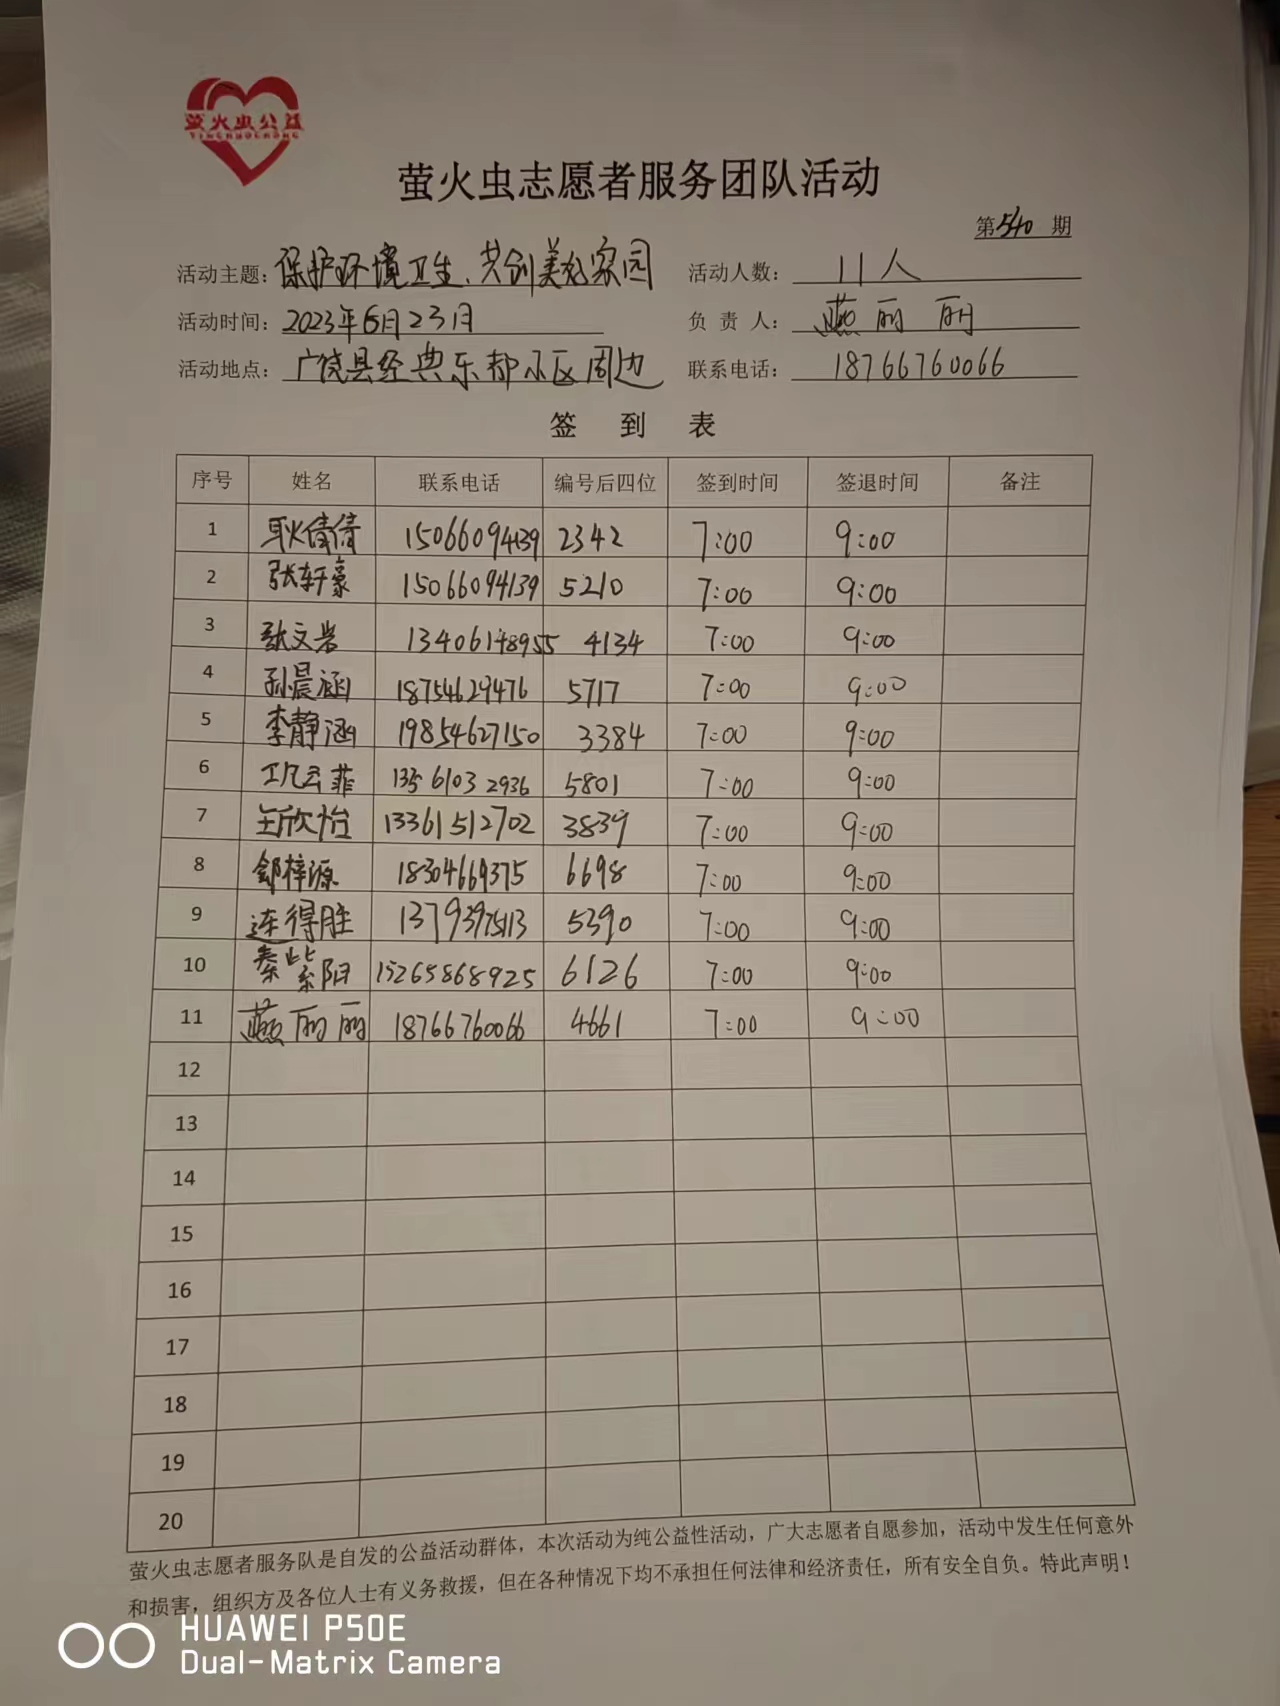 萤火虫公益
YINGHUOCHONG
萤火虫志愿者服务团队活动
第540期
活动主题：保护环境卫生、共创美好家园 活动人数：11人
活动时间：2023年6月23日 负责人：燕丽丽
活动地点：广饶县经典乐都小区周边 联系电话：18766760066
签到表
序号 姓名 联系电话 编号后四位 签到时间 签退时间 备注
1 耿倩倩 15066094139 2342 7:00 9:00
2 张轩豪 15066094139 5210 7:00 9:00
3 张文岩 13406148955 4134 7:00 9:00
4 孙晨涵 18754629476 5717 7:00 9:00
5 李静涵 19854627150 3384 7:00 9:00
6 云菲 13561032936 5801 7:00 9:00
7 王欣怡 13361512702 3839 7:00 9:00
8 梓源 18304669375 6698 7:00 9:00
9 连得胜 13793975113 5390 7:00 9:00
10 秦紫阳 15265868925 6126 7:00 9:00
11 燕丽丽 18766760066 4661 7:00 9:00
12
13
14
15
16
17
18
19
20
萤火虫志愿者服务队是自发的公益活动群体，本次活动为纯公益性活动，广大志愿者自愿参加，活动中发生任何意外
和损害，组织方及各位人士有义务救援，但在各种情况下均不承担任何法律和经济责任，所有安全自负。特此声明！
HUAWEI P50E
Dual-Matrix Camera